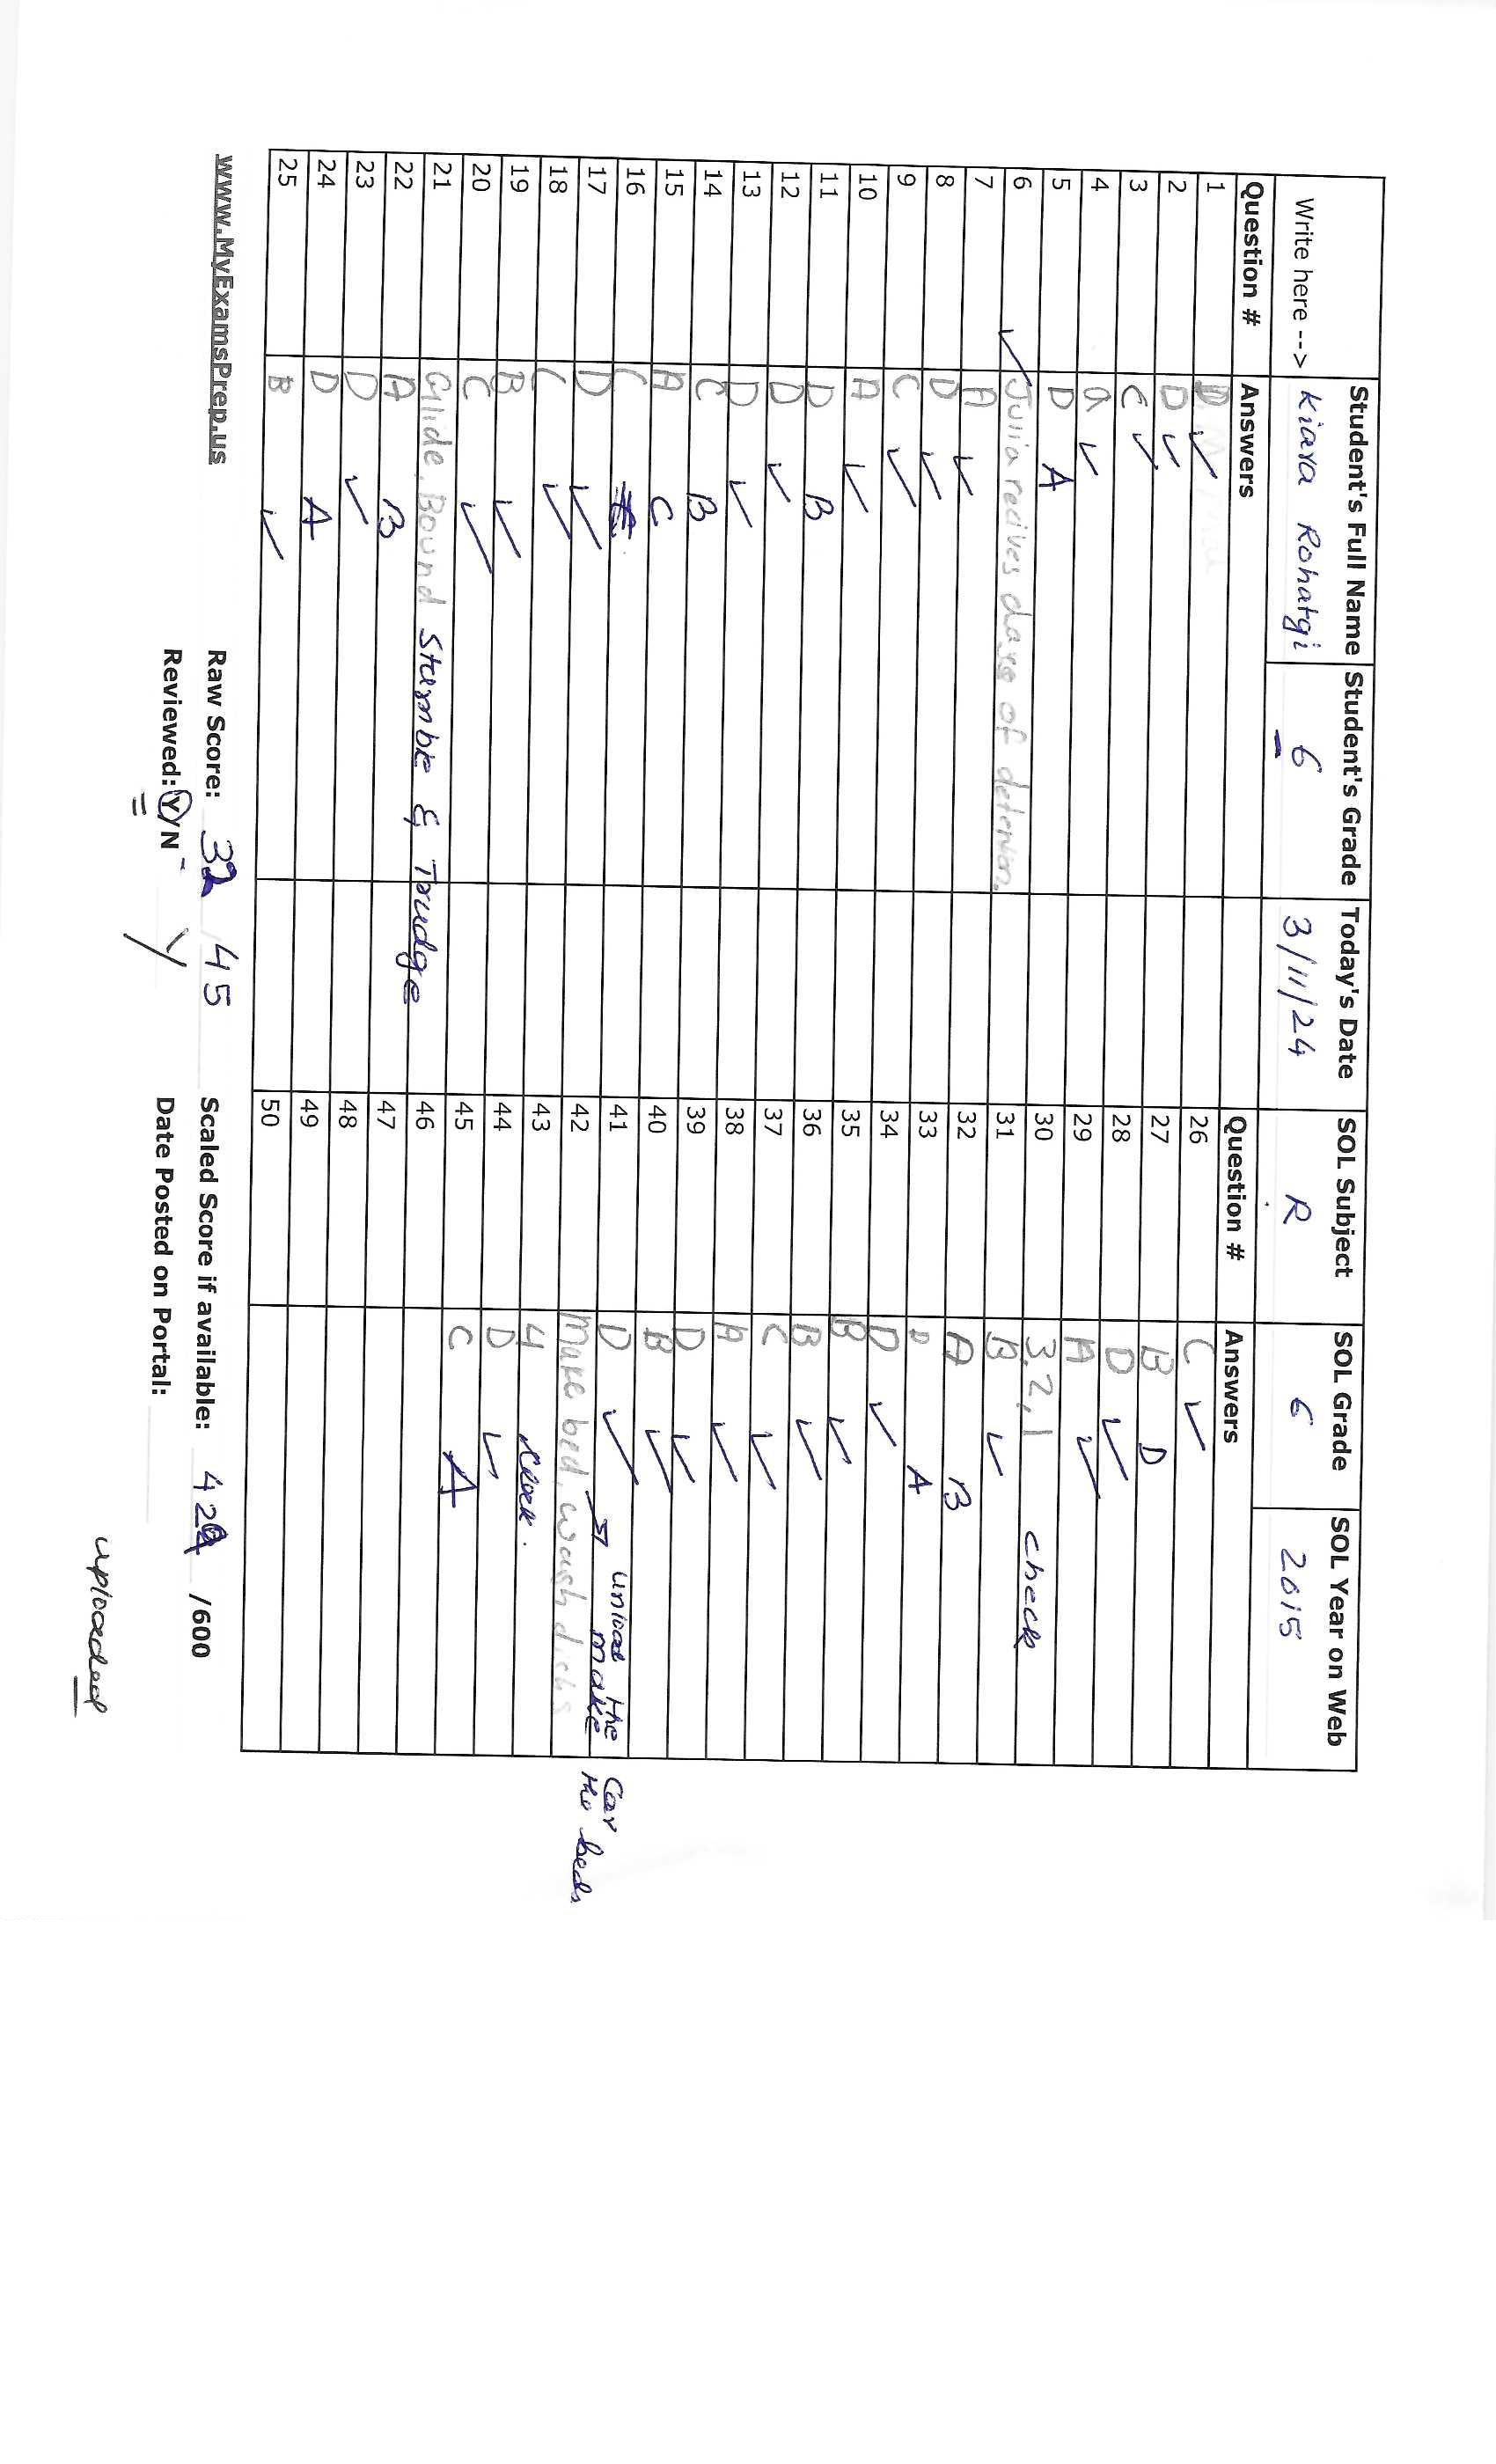 Student's Full Name Student's Grade Today's Date SOL Subject SOL Grade SOL Year on Web
Write here --> Kiara Rohatgi 6 3/11/24 R 6 2015
Question # Answers Question # Answers
1 D ✓ 26 C ✓
2 D ✓ 27 B D
3 C ✓ 28 D ✓
4 a ✓ 29 A ✓
5 D A 30 3,2,1 check
6 ✓ Julia recives days of detention. 31 B ✓
7 A ✓ 32 A B
8 D ✓ 33 D A
9 C ✓ 34 D ✓
10 A ✓ 35 B ✓
11 D B 36 B ✓
12 D ✓ 37 C ✓
13 D ✓ 38 A ✓
14 C B 39 D ✓
15 A C 40 B ✓
16 C 41 D ✓ unload the car
17 D ✓ 42 Make bed, wash dishs → make the beds
18 C ✓ 43 4
19 B ✓ 44 D ✓
20 C ✓ 45 C A
21 Glide, Bound Stumble & Trudge 46
22 A B 47
23 D ✓ 48
24 D A 49
25 B ✓ 50
www.MyExamsPrep.us Raw Score: 32 / 45 Scaled Score if available: 424 /600
Reviewed: Y/N Y Date Posted on Portal:
uploaded